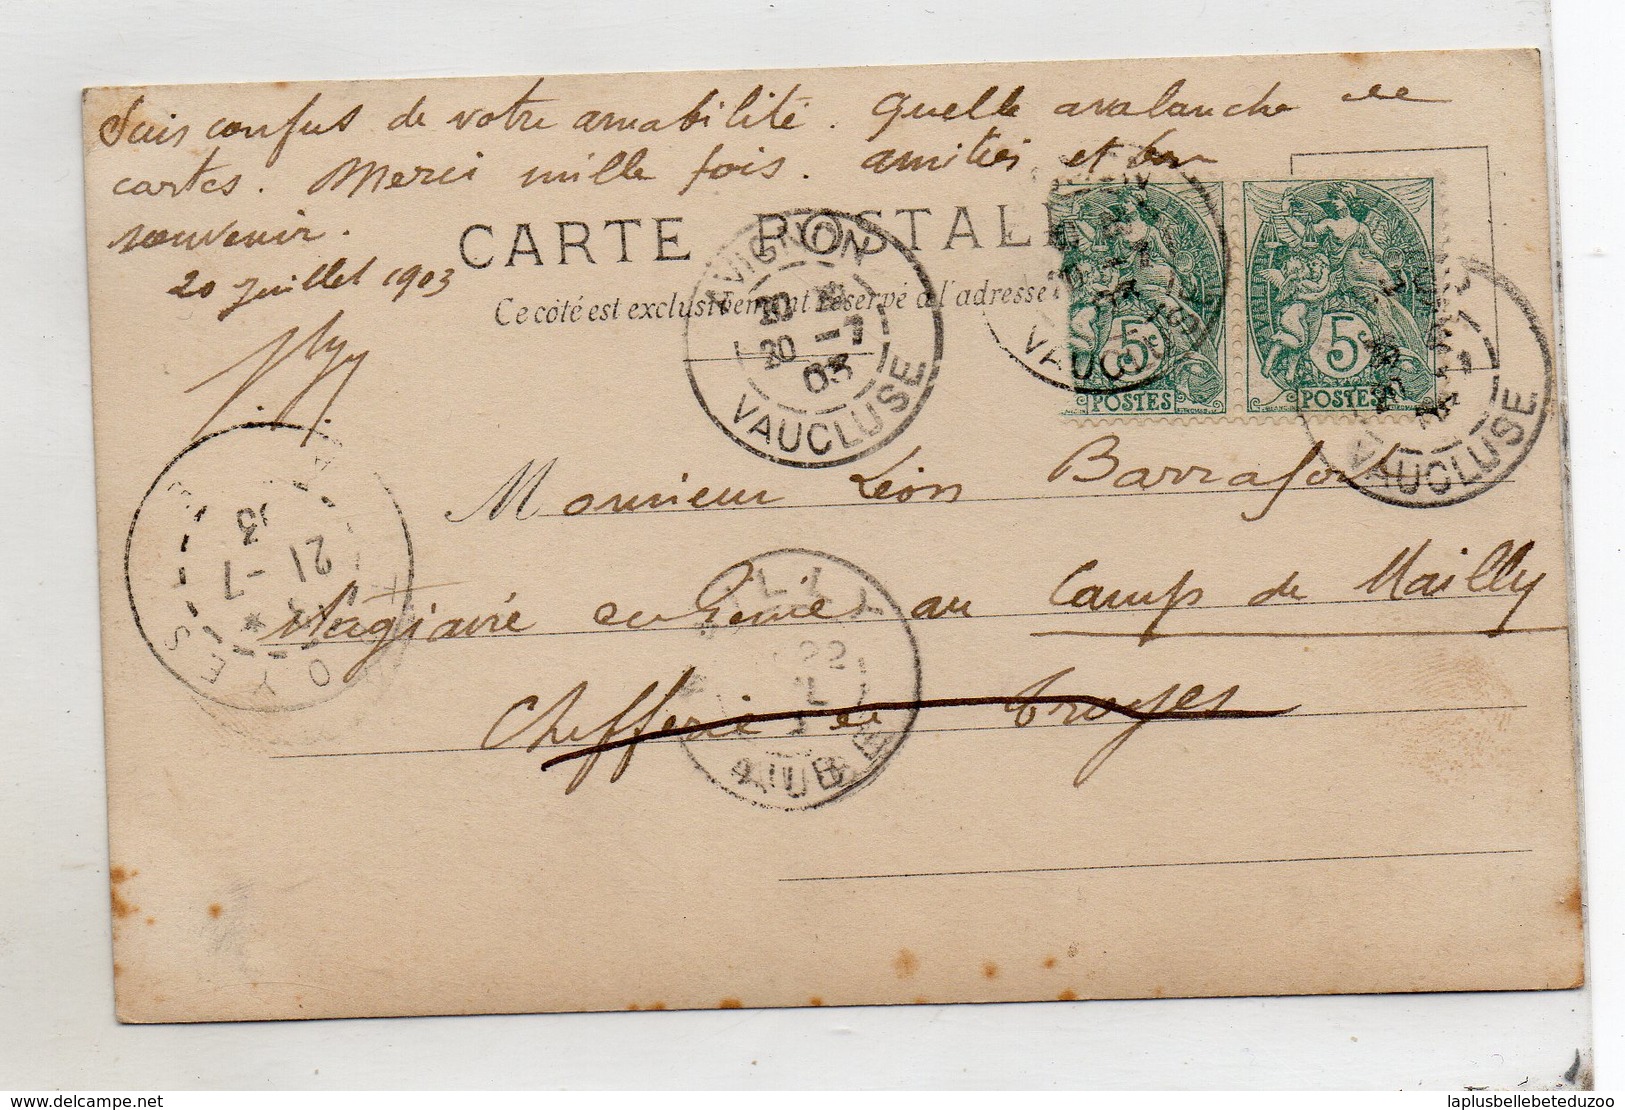 Suis confus de votre amabilité. Quelle avalanche de
cartes. Merci mille fois. amitiés et bon
souvenir.
20 juillet 1903
CARTE POSTALE
Ce côté est exclusivement réservé à l'adresse
AVIGNON
20 -7
03
VAUCLUSE
VAUCLUSE
VAUCLUSE
5
POSTES
5
POSTES
Monsieur Léon Barrafort
Stagiaire au Génie au Camp de Mailly
Chefferie de Troyes
TROYES
21 -7
03
MAILLY
22
AUBE
delcampe.net
laplusbellebeteduzoo